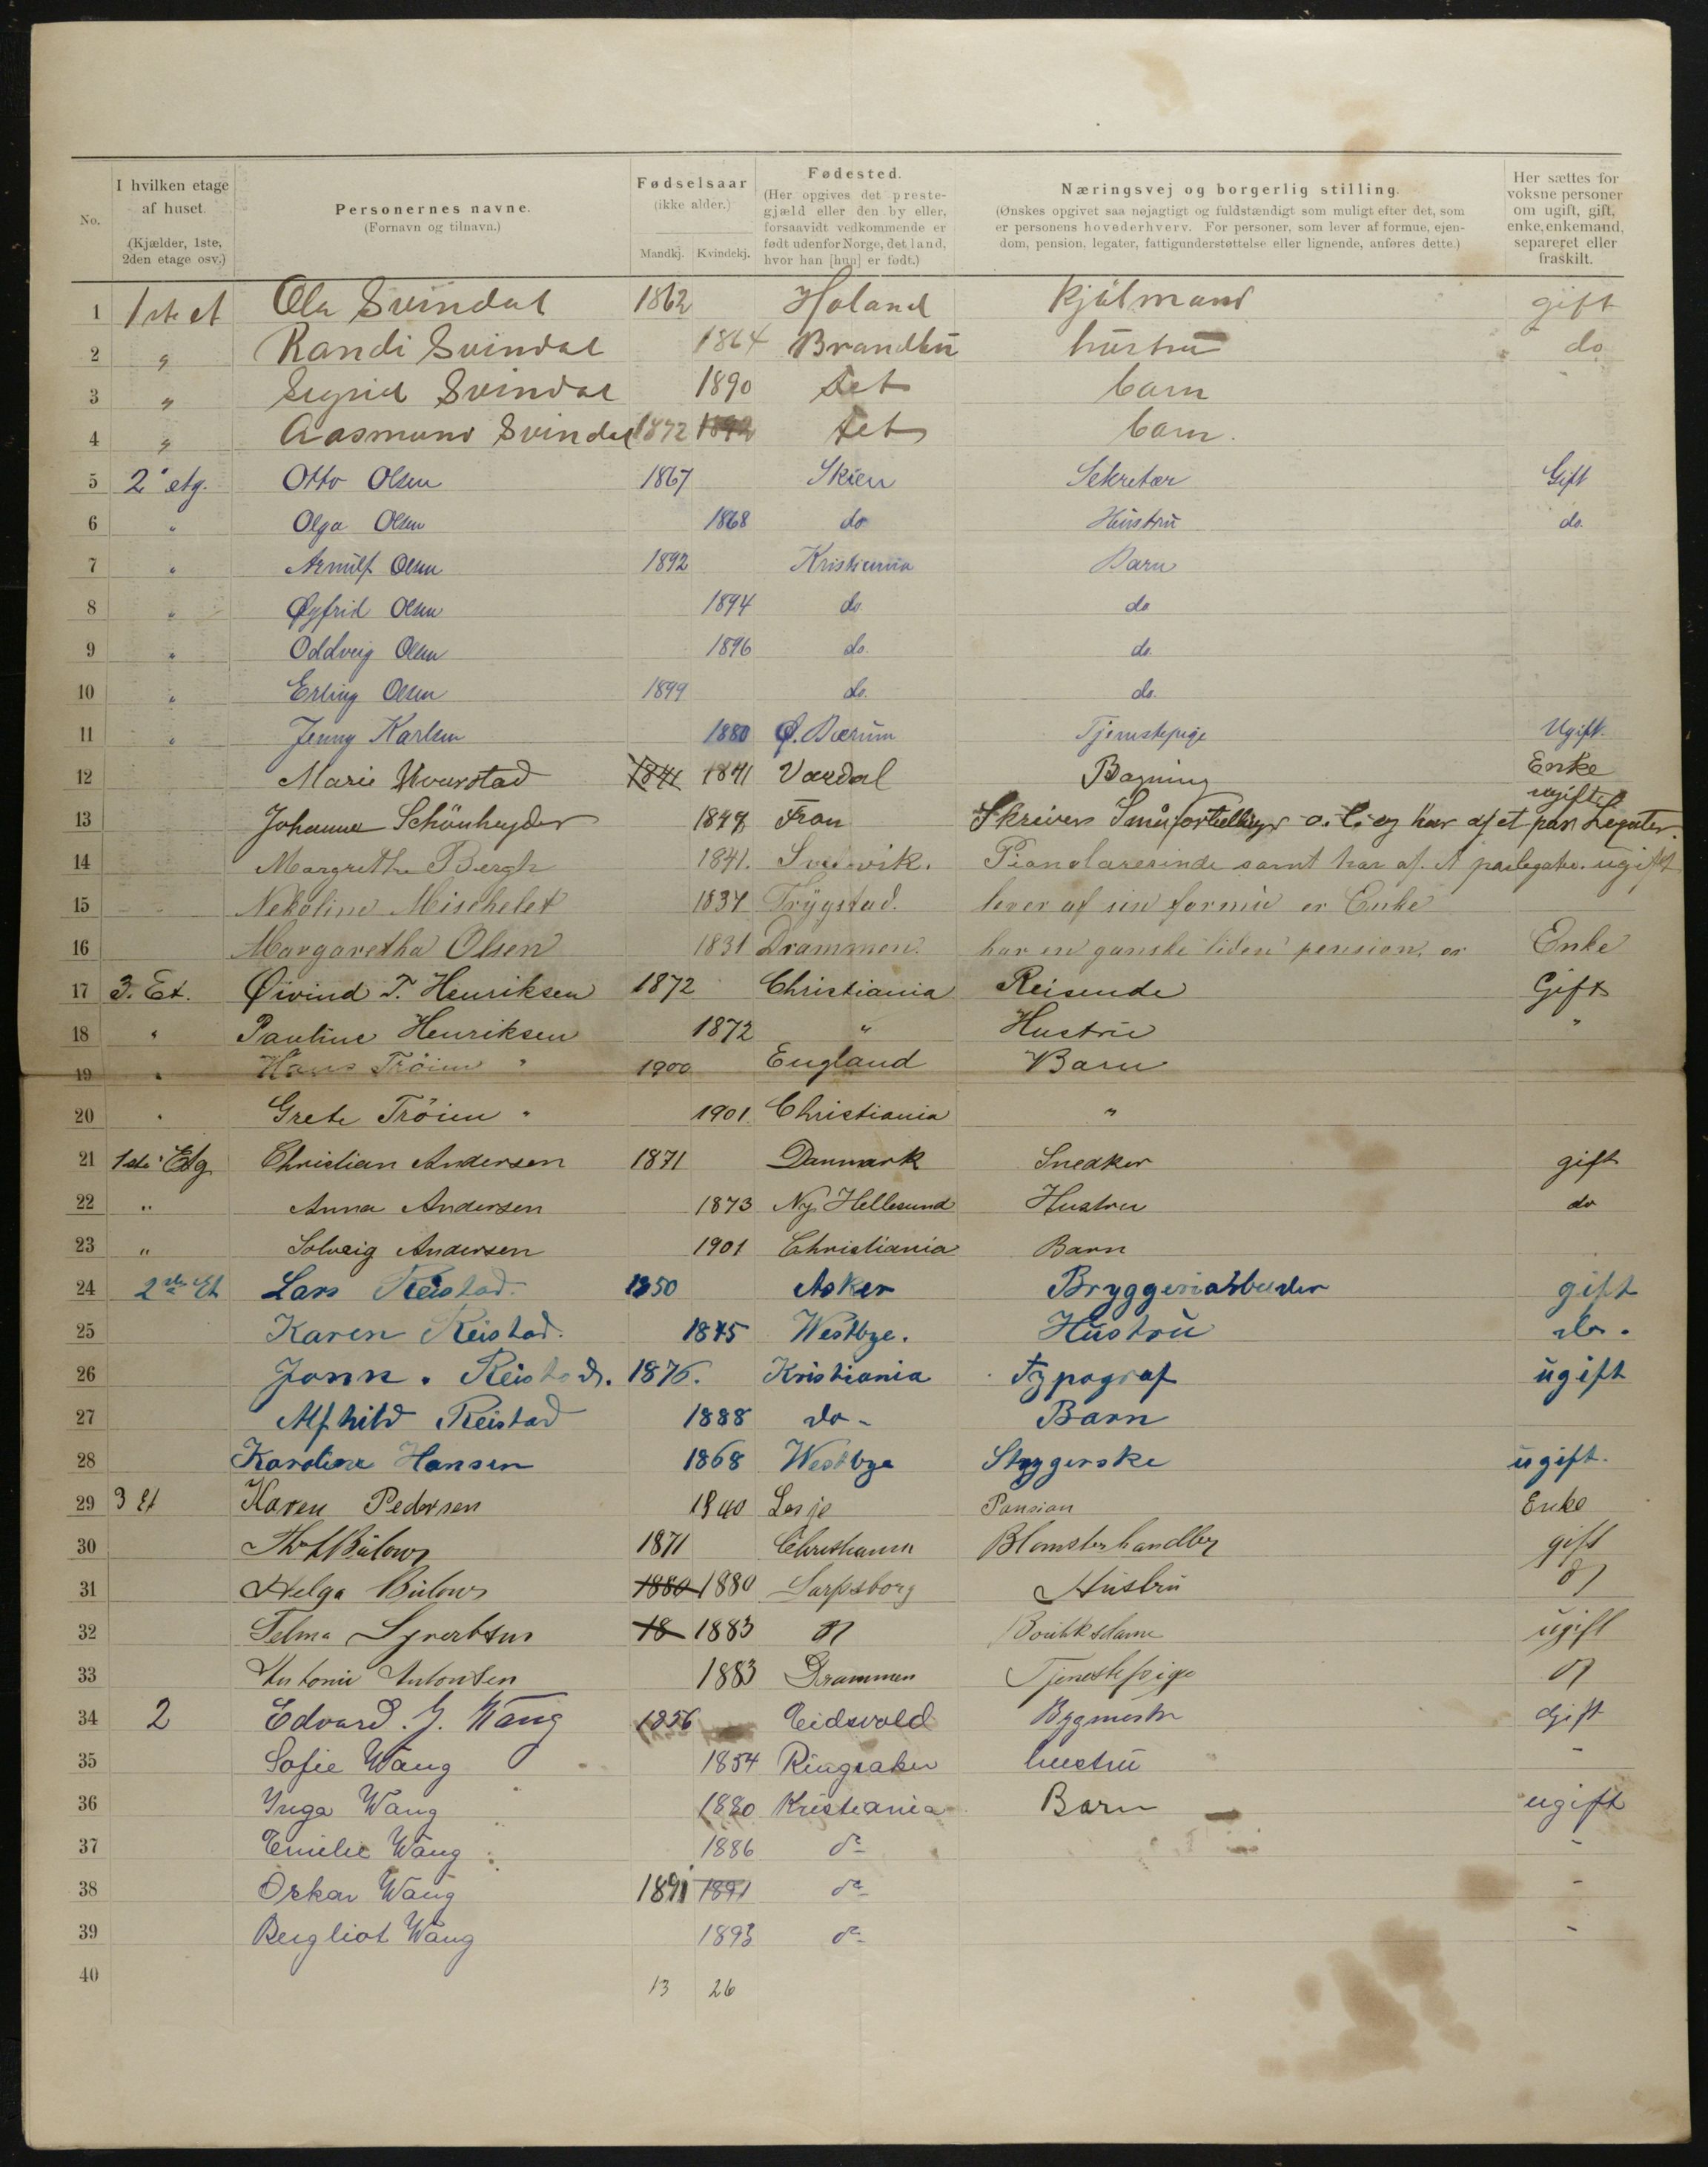 No.
I hvilken etage af huset.
(Kjælder, 1ste, 2den etage osv.)
Personernes navne.
(Fornavn og tilnavn.)
Fødselsaar
(ikke alder.)
Mandkj. Kvindekj.
Fødested.
(Her opgives det prestegjæld eller den by eller, forsaavidt vedkommende er født udenfor Norge, det land, hvor han [hun] er født.)
Næringsvej og borgerlig stilling.
(Ønskes opgivet saa nøjagtigt og fuldstændigt som muligt efter det, som er personens hovederhverv. For personer, som lever af formue, ejendom, pension, legater, fattigunderstøttelse eller lignende, anføres dette.)
Her sættes for voksne personer om ugift, gift, enke, enkemand, separeret eller fraskilt.
1 1ste et Ola Svindal 1862 Høland gift
2 " Randi Svindal 1864 Brandbu hustru do
3 " Sigrid Svindal 1890 barn
4 " Aasmund Svindal 1872 1892 barn.
5 2' etg. Otto Olsen 1867 Skien Sekretær Gift
6 " Olga Olsen 1868 do Hustru do.
7 " Arnulf Olsen 1892 Kristiania Barn
8 " Øyfrid Olsen 1894 do. do
9 " Oddveig Olsen 1896 do. do.
10 " Erling Olsen 1899 do. do.
11 " Jenny Karlsen 1880 Ø. Bærum Tjenestepige Ugift.
12 Marie 1841 1841 Vardal Enke
13 Johanne Schönheyder 1847 Fron Skriver Småfortellinger o. l. og har af et par Legater. ugift
14 Margrethe Bergh 1841. Pianolærerinde samt har af. et par legater. ugift
15 Mischelet 1834 Trygstad. lever af sin formue er Enke
16 Margaretha Olsen 1831 Drammen. har en ganske liden pension, er Enke
17 3. Et. Øivind T. Henriksen 1872 Christiania Reisende Gift
18 " Pauline Henriksen 1872 " Hustru "
19 " Hans Tröim " 1900 England Barn
20 " Grete Tröim " 1901. Christiania "
21 1ste Etg Christian Andersen 1871 Danmark Snedker gift
22 " Anna Andersen 1873 Ny Hellesund Hustru do
23 " Solveig Andersen 1901 Christiania Barn
24 2den Et Lars Reistad. 1850 Asker Bryggeriarbeider gift
25 Karen Reistad. 1845 Westbye. Hustru do.
26 Reistad. 1876. Kristiania Typograf ugift
27 Alfhild Reistad 1888 do- Barn
28 Karoline Hansen 1868 Westbye Strygerske ugift.
29 3 Et Karen Pedersen 1840 Lesje Pansion Enke
30 Bülow 1871 Christiania Blomsterhandler gift
31 Helga Bülow 1880 1880 Sarpsborg Hustru "
32 Selma Syvertsen 18 1883 " Boutiksdame ugift
33 Antonie Antonsen 1883 Drammen Tjenestepige "
34 2 Edvard. J. Wang 1856 Eidsvold Bygmester Gift
35 Sofie Wang 1854 Ringsaker hustru -
36 Inga Wang 1880 Kristiania Barn ugift
37 Emilie Wang 1886 do -
38 Oskar Wang 1891 1891 do -
39 Bergliot Wang 1893 do -
40 13 26